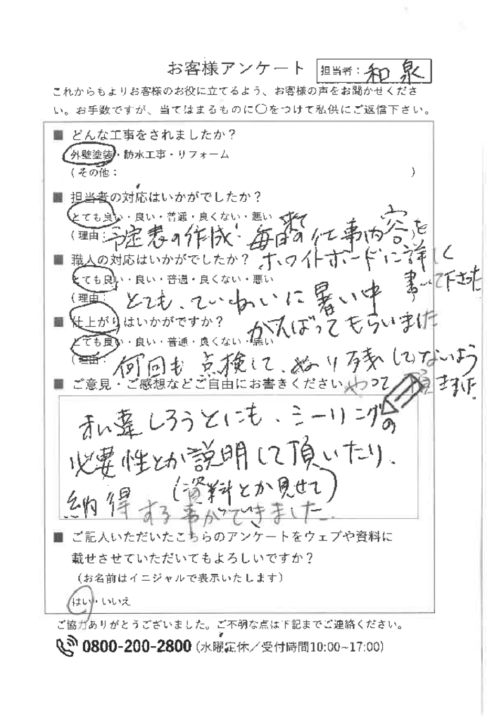 お客様アンケート 担当者：和泉
これからもよりお客様のお役に立てるよう、お客様の声をお聞かせくださ
い。お手数ですが、当てはまるものに○をつけて私供にご返信下さい。
■ どんな工事をされましたか？
外壁塗装・防水工事・リフォーム
（その他： ）
■ 担当者の対応はいかがでしたか？
とても良い・良い・普通・良くない・悪い
（理由：予定表の作成・毎日の仕事内容を
ホワイトボードに詳しく
書いて下さった
■ 職人の対応はいかがでしたか？
とても良い・良い・普通・良くない・悪い
（理由：とても、ていねいに暑い中
がんばってもらいました
■ 仕上がりはいかがですか？
とても良い・良い・普通・良くない・悪い
（理由：何回も点検して、ぬり残してないよう
やって頂きました
■ ご意見・ご感想などご自由にお書きください
私達しろうとにも、シーリングの
必要性とか説明して頂いたり、
（資料とか見せて）
納得する事ができました
■ ご記入いただいたこちらのアンケートをウェブや資料に
載せさせていただいてもよろしいですか？
（お名前はイニシャルで表示いたします）
はい・いいえ
ご協力ありがとうございました。ご不明な点は下記までご連絡ください。
0800-200-2800（水曜定休／受付時間10:00~17:00）